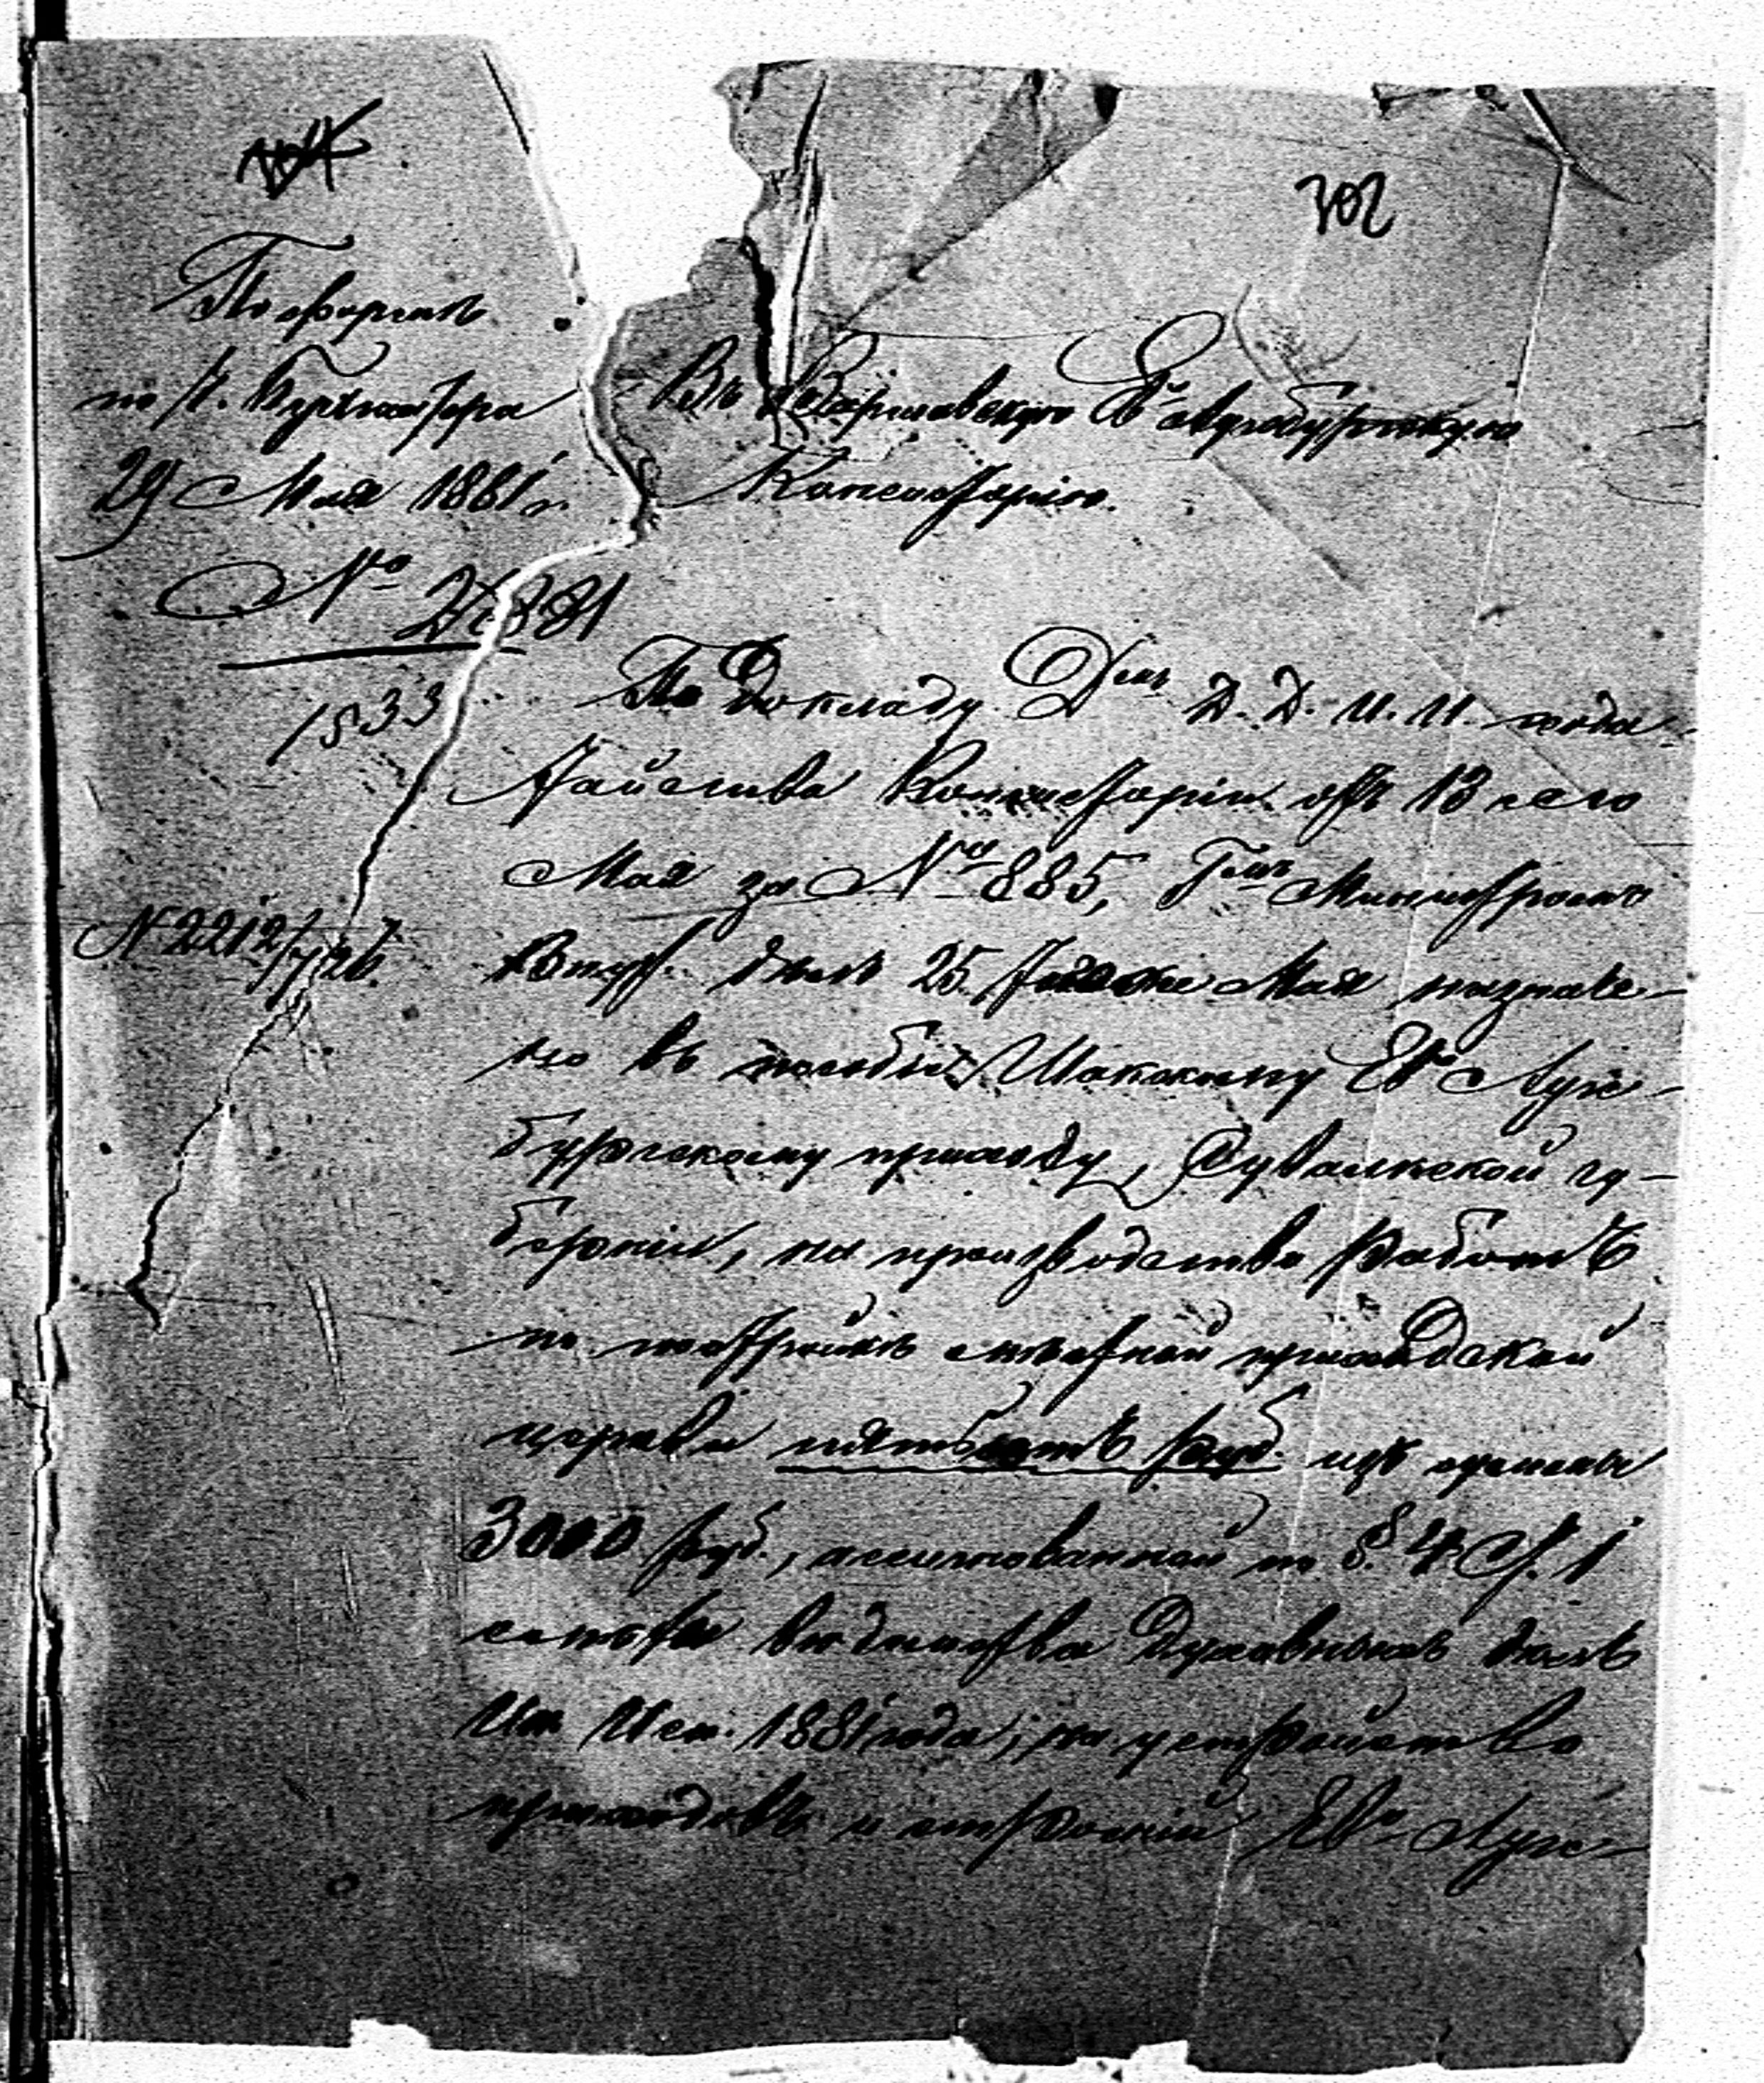 702
По формѣ
по
29 Мая 1881 г.
№
1533
№ 2212/
Въ Варшавскую Ев. Аугсбургскую
Консисторію.
По докладу Деп. Д. Д. И. И. хода-
тайства Консисторіи отъ 13 сего
Мая за № 885, Г. Министромъ
Внутр. дѣлъ 25 того же Мая назначе-
но въ пособіе Шакскому Ев. Аугс-
бургскому приходу, Сувалкской гу-
берніи, на производство работъ
по постройкѣ приходской
церкви пятьсотъ руб. изъ суммы
3000 руб., ассигнованной по §. 4 ст. 1
смѣты вѣдомства Духовныхъ дѣлъ
Ин. Исп. 1881 года, на устройство
приходовъ и строеній Ев. Аугс-